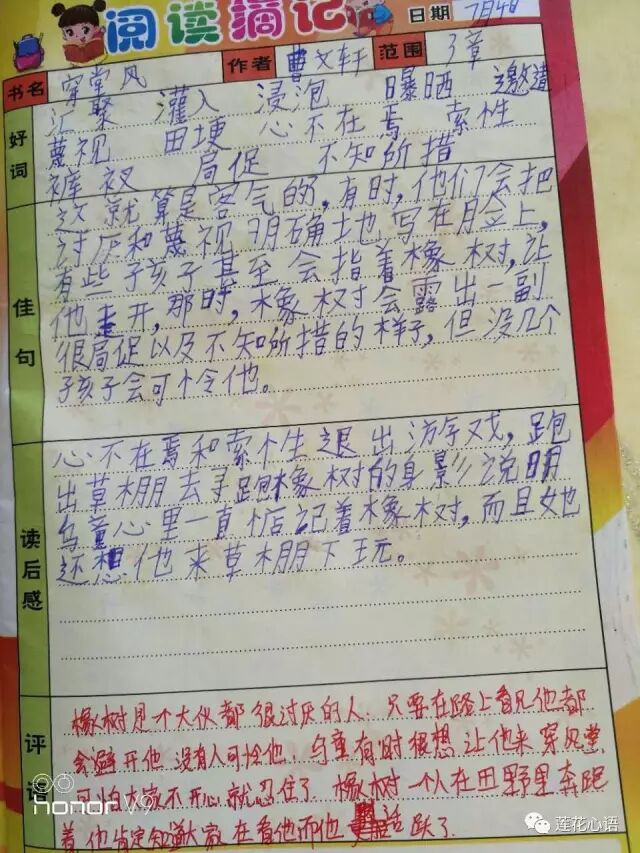 阅读摘记
日期 7月4日
书名 穿堂风 作者 曹文轩 范围 3章
好词
汇聚 灌入 浸泡 曝晒 邀遣
蔑视 田埂 心不在焉 索性
裤衩 局促 不知所措
佳句
这就算是客气的,有时,他们会把
讨厌和蔑视明确土地写在月佥上,
有些孩子甚至会指着橡树,让
他走开,那时,橡树会露出一副
很局促以及不知所措的样子,但没几个
孩子会可怜他。
读后感
心不在焉和索性退出游戏,跑
出草棚去寻跑橡树的身影说明
乌童心里一直惦记着橡树,而且她
还想他来草棚下玩。
评语
橡树是个大伙都很讨厌的人.只要在路上看见他都
会避开他.没有人可怜他.乌童有时很想让他来穿风堂,
可怕大家不开心就忍住了.橡树一个人在田野里奔跑
着.他肯定知道大家在看他而他 活跃了.
honor V9
莲花心语